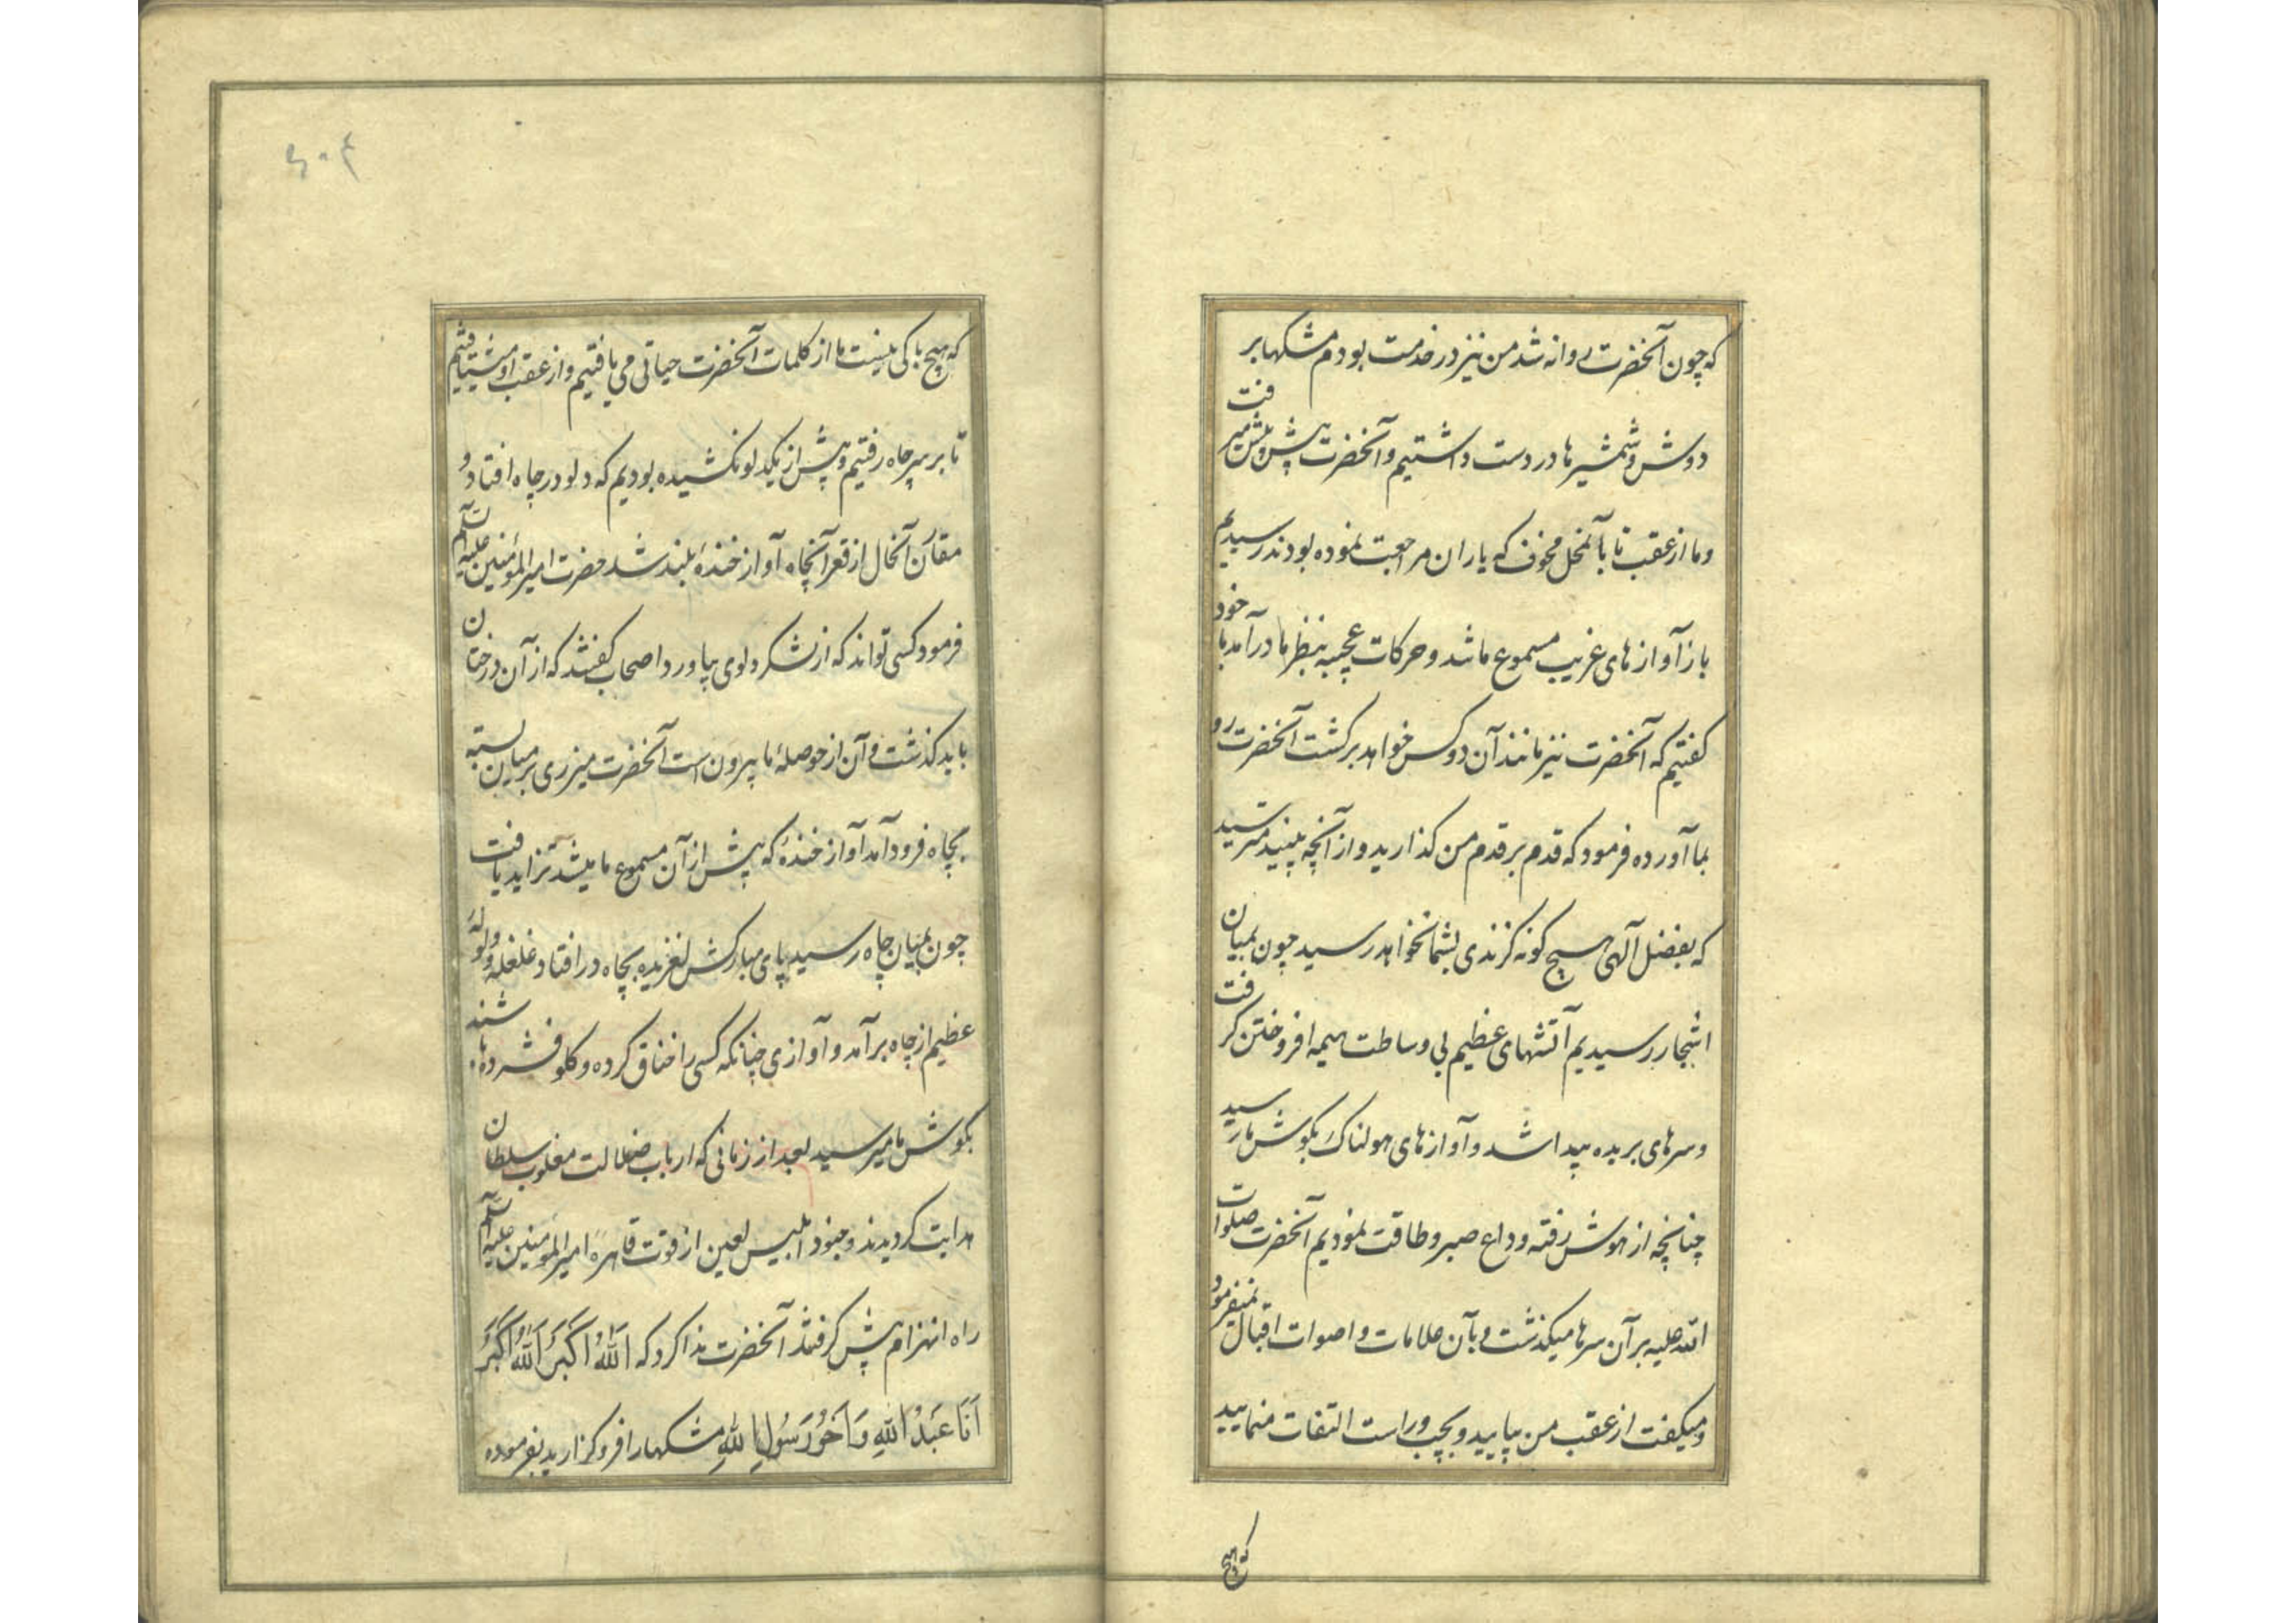 که چون آنحضرت روانه شد من نیز در خدمت بودم مشکها بر
دوش و شمشیرها در دست داشتیم و آنحضرت پیش پیش میرفت
و ما از عقب تا بآنمحل مخوف که یاران مراجعت نموده بودند رسیدیم
باز آوازهای غریب مسموع ما شد و حرکات عجیبه بنظر ما درآمد با خود
کفتیم که آنحضرت نیز مانند آن دو کس خواهد برکشت آنحضرت رو
بما آورده فرمود که قدم بر قدم من کذارید و از آنچه بینید مترسید
که بفضل آلهی هیچ کونه کزندی بشما نخواهد رسید چون بمیان
اشجار رسیدیم آتشهای عظیم بی وساطت هیمه افروختن کرفت
و سرهای بریده پیدا شد و آوازهای هولناک بکوش ما رسید
چنانچه از هوش رفته وداع صبر و طاقت نمودیم آنحضرت صلوات
الله علیه بر آن سرها میکذشت و بآن علامات و اصوات اقبال نمیفرمود
و میکفت از عقب من بیایید و بچپ و راست التفات منمایید
که هیچ
۶۰۴
که هیچ باکی نیست ما از کلمات آنحضرت حیاتی می یافتیم و از عقب او میشتافتیم
تا بر سر چاه رفتیم و پیش از یکدلو نکشیده بودیم که دلو در چاه افتاد و
مقارن آنحال از قعر آنچاه آواز خندهٔ بلند شد حضرت امیرالمؤمنین علیه السلام
فرمود کسی تواند که از لشکر دلوی بیاورد اصحاب کفتند که از آن درختان
باید کذشت و آن از حوصلهٔ ما بیرون است آنحضرت میزری بر میان بسته
بچاه فرود آمد آواز خندهٔ که پیش از آن مسموع ما میشد تزاید یافت
چون بمیان چاه رسید پای مبارکش لغزیده بچاه در افتاد غلغله و ولولهٔ
عظیم از چاه برآمد و آوازی چنانکه کسی را خناق کرده و کلو فشرده باشند
بکوش ما میرسید بعد از زمانی که ارباب ضلالت مغلوب سلطان
هدایت کردیدند و جنود ابلیس لعین از قوت قاهرهٔ امیرالمومنین علیه السلام
راه انهزام پیش کرفتند آنحضرت ندا کرد که اَللّٰهُ اَکْبَرُ اَللّٰهُ اَکْبَرُ
اَنَا عَبْدُ اللّٰهِ وَ اَخُو رَسُولِ اللّٰهِ مشکها را فرو کزارید بفرموده